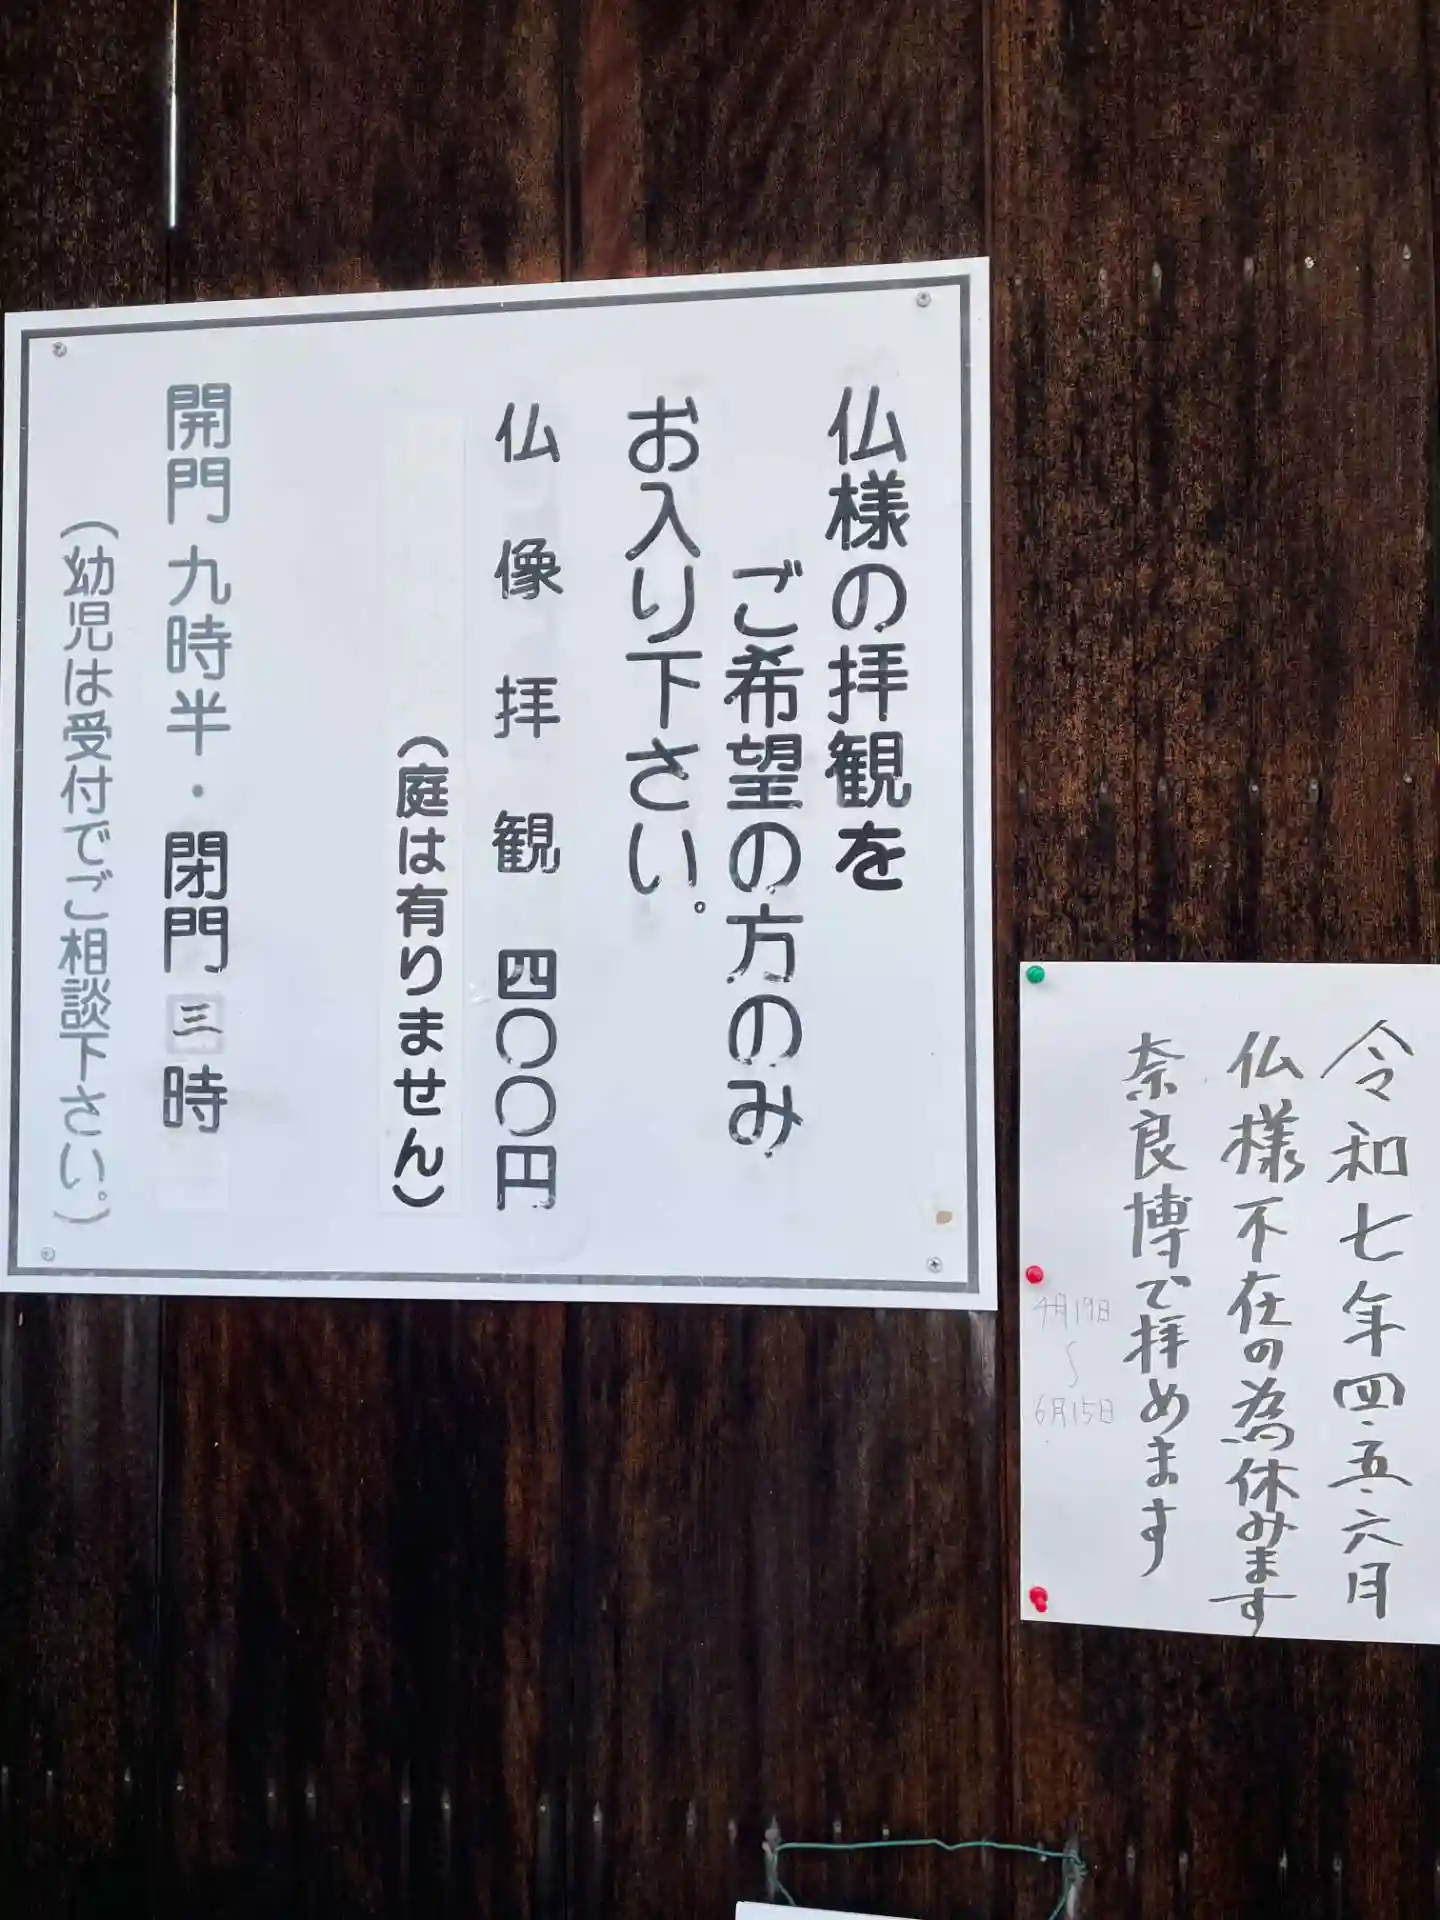 仏様の拝観を
ご希望の方のみ
お入り下さい。
仏像拝観 四〇〇円
(庭は有りません)
開門 九時半・閉門 三時
(幼児は受付でご相談下さい。)
令和七年四・五・六月
仏様不在の為休みます
奈良博で拝めます
4月19日
〜
6月15日